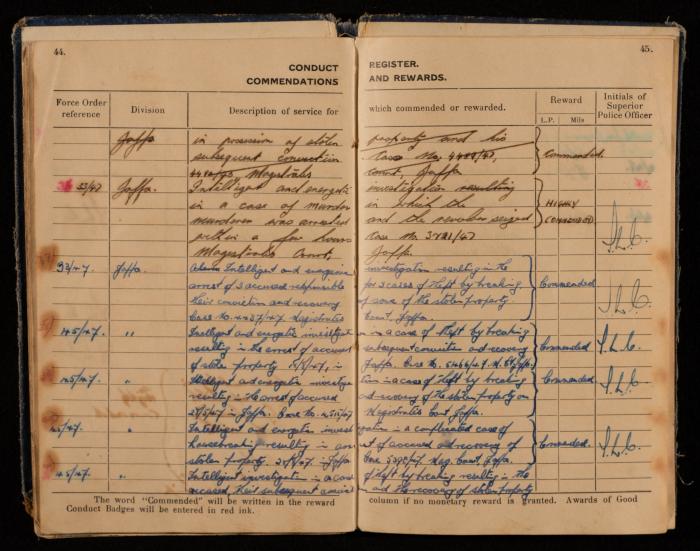 44.
45.
CONDUCT REGISTER.
COMMENDATIONS AND REWARDS.
Force Order reference
Division
Description of service for which commended or rewarded.
Reward
L.P. Mils
Initials of Superior Police Officer
Jaffa in possession of stolen property and his
subsequent conviction Case No. 4488/47, Commended.
Magistrates Court, Jaffa
53/47 Jaffa. Intelligent and energetic investigation resulting
in a case of murder in which the HIGHLY
murderer was arrested and the revolver seized COMMENDED
within a few hours Case No. 3421/47
Magistrates Court, Jaffa. J.L.C.
93/47. Jaffa. Intelligent and investigation resulting in the
arrest of 3 accused responsible for 3 cases of theft by breaking, Commended
their conviction and recovery of some of the stolen property
Case No. 4437/47 Magistrates Court, Jaffa. J.L.C.
145/47. " Intelligent and energetic investigation in a case of theft by breaking
resulting in the arrest of accused subsequent conviction and recovery Commended J.L.C.
of stolen property in Jaffa.
145/47. " Intelligent and energetic investigation in a case of theft by breaking
resulting in the arrest of accused and recovery of the stolen property on Commended J.L.C.
in Jaffa. Case No. Magistrates Court, Jaffa.
145/47. " Intelligent and energetic investigation in a complicated case of
housebreaking resulting in arrest of accused and recovery of Commended. J.L.C.
stolen property. Jaffa Case Mag. Court, Jaffa.
145/47. " Intelligent investigation in a case of theft by breaking resulting in the
accused, their subsequent and the recovery of stolen property
The word "Commended" will be written in the reward column if no monetary reward is granted. Awards of Good
Conduct Badges will be entered in red ink.